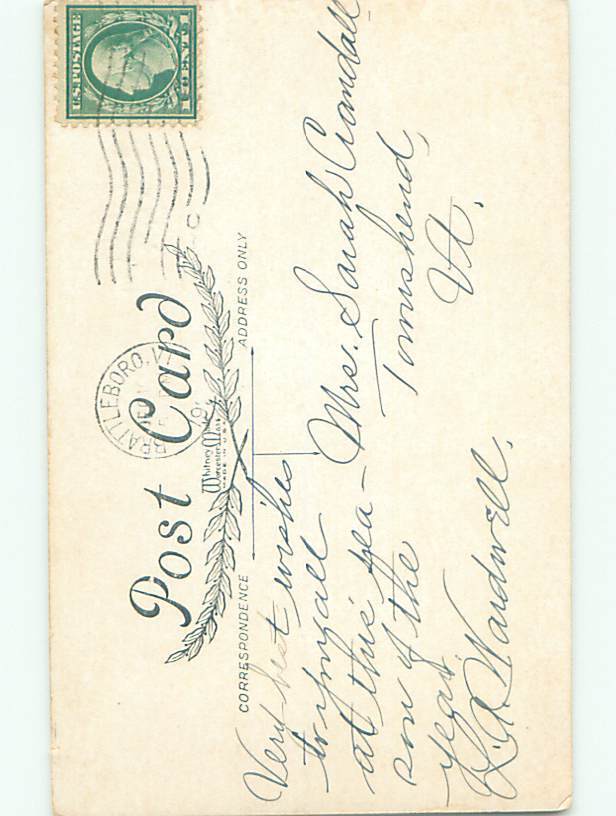 U.S. POSTAGE
1 CENT 1
BRATTLEBORO, VT
Post Card
Whitney Made
Worcester Mass
MADE IN U.S.A.
CORRESPONDENCE
ADDRESS ONLY
Very best wishes
to you all
at this sea-
son of the
year.
Wardwell.
Mrs. Sarah Crandall
Townshend,
Vt.